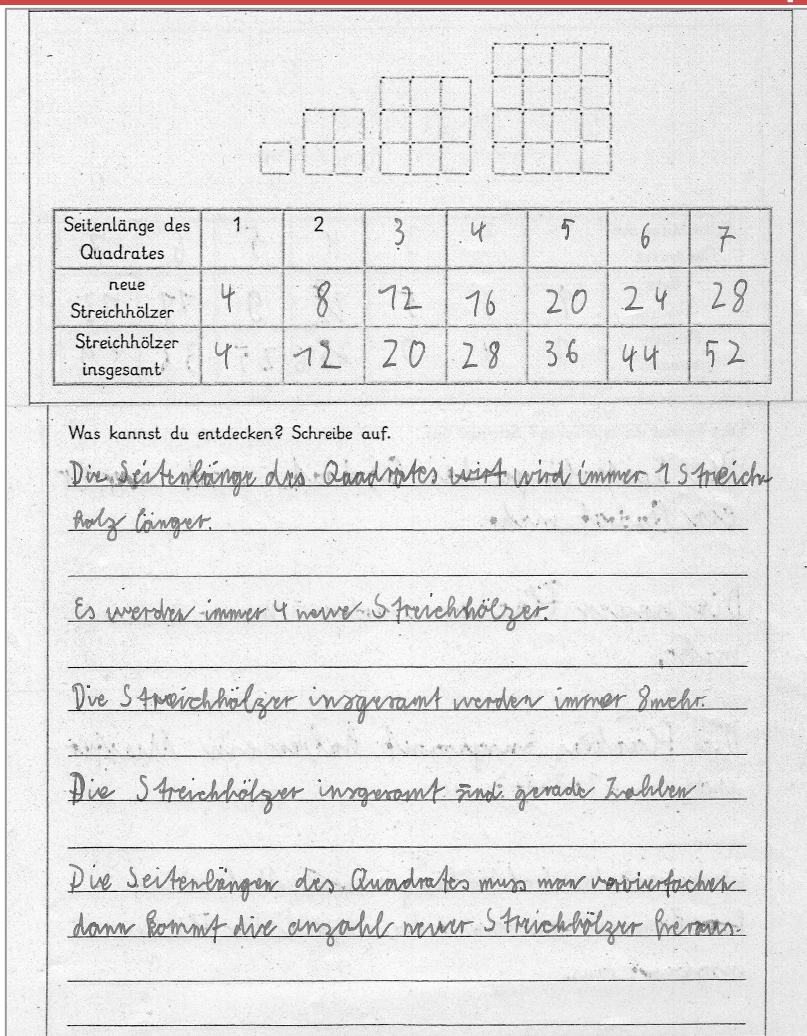 Seitenlänge des Quadrates 1 2 3 4 5 6 7
neue Streichhölzer 4 8 12 16 20 24 28
Streichhölzer insgesamt 4 12 20 28 36 44 52
Was kannst du entdecken? Schreibe auf.
Die Seitenlänge des Quadrates wirt wird immer 1 Streich
holz länger.
Es werden immer 4 neue Streichhölzer.
Die Streichhölzer insgesamt werden immer 8 mehr.
Die Streichhölzer insgesamt sind gerade Zahlen
Die Seitenlängen des Quadrates muss man vervierfachen
dann kommt die anzahl neuer Streichhölzer heraus.